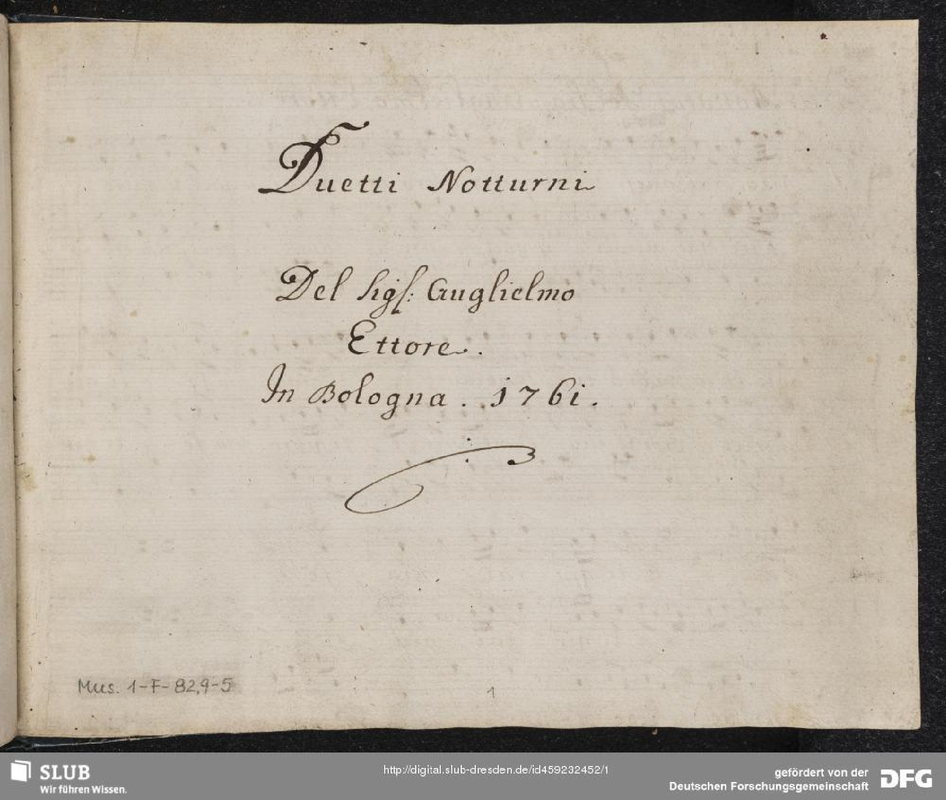 Duetti Notturni
Del Sigr: Guglielmo
Ettore.
In Bologna. 1761.
Mus. 1-F-82,9-5
1
SLUB
Wir führen Wissen.
http://digital.slub-dresden.de/id459232452/1
gefördert von der
Deutschen Forschungsgemeinschaft
DFG